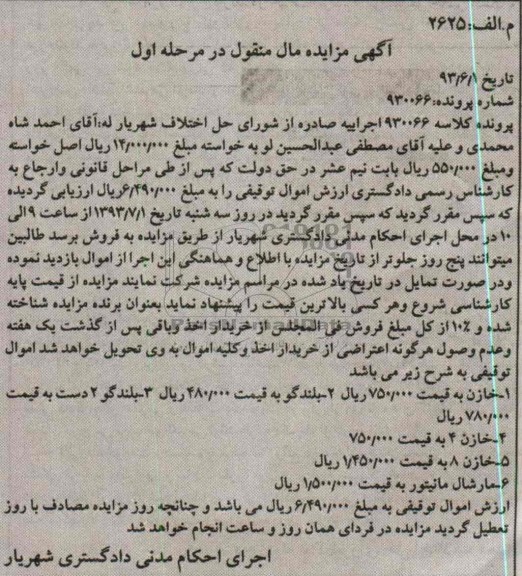 م.الف:۲۶۲۵
آگهی مزایده مال منقول در مرحله اول
تاریخ ۹۳/۶/۱
شماره پرونده:۹۳۰۰۶۶
پرونده کلاسه ۹۳۰۰۶۶ اجراییه صادره از شورای حل اختلاف شهریار له:آقای احمد شاه
محمدی و علیه آقای مصطفی عبدالحسین لو به خواسته مبلغ ۱۴/۰۰۰/۰۰۰ ریال اصل خواسته
ومبلغ ۵۵۰/۰۰۰ ریال بابت نیم عشر در حق دولت که پس از طی مراحل قانونی وارجاع به
کارشناس رسمی دادگستری ارزش اموال توقیفی را به مبلغ ۶/۴۹۰/۰۰۰ریال ارزیابی گردیده
که سپس مقرر گردید که سپس مقرر گردید در روز سه شنبه تاریخ ۱۳۹۳/۷/۱ از ساعت ۹ الی
۱۰ در محل اجرای احکام مدنی دادگستری شهریار از طریق مزایده به فروش برسد طالبین
میتوانند پنج روز جلوتر از تاریخ مزایده با اطلاع و هماهنگی این اجرا از اموال بازدید نموده
ودر صورت تمایل در تاریخ یاد شده در مراسم مزایده شرکت نمایند مزایده از قیمت پایه
کارشناسی شروع وهر کسی بالاترین قیمت را پیشنهاد نماید بعنوان برنده مزایده شناخته
شده و ۱۰٪ از کل مبلغ فروش فی المجلس از خریدار اخذ وباقی پس از گذشت یک هفته
وعدم وصول هرگونه اعتراضی از خریدار اخذ وکلیه اموال به وی تحویل خواهد شد اموال
توقیفی به شرح زیر می باشد
۱-خازن به قیمت ۷۵۰/۰۰۰ ریال ۲-بلندگو به قیمت ۴۸۰/۰۰۰ ریال ۳-بلندگو ۲ دست به قیمت
۷۸۰/۰۰۰ ریال
۴-خازن ۴ به قیمت ۷۵۰/۰۰۰
۵-خازن ۸ به قیمت ۱/۴۵۰/۰۰۰ ریال
۶-مارشال مانیتور به قیمت ۱/۵۰۰/۰۰۰ ریال
ارزش اموال توقیفی به مبلغ ۶/۴۹۰/۰۰۰ ریال می باشد و چنانچه روز مزایده مصادف با روز
تعطیل گردید مزایده در فردای همان روز و ساعت انجام خواهد شد
اجرای احکام مدنی دادگستری شهریار